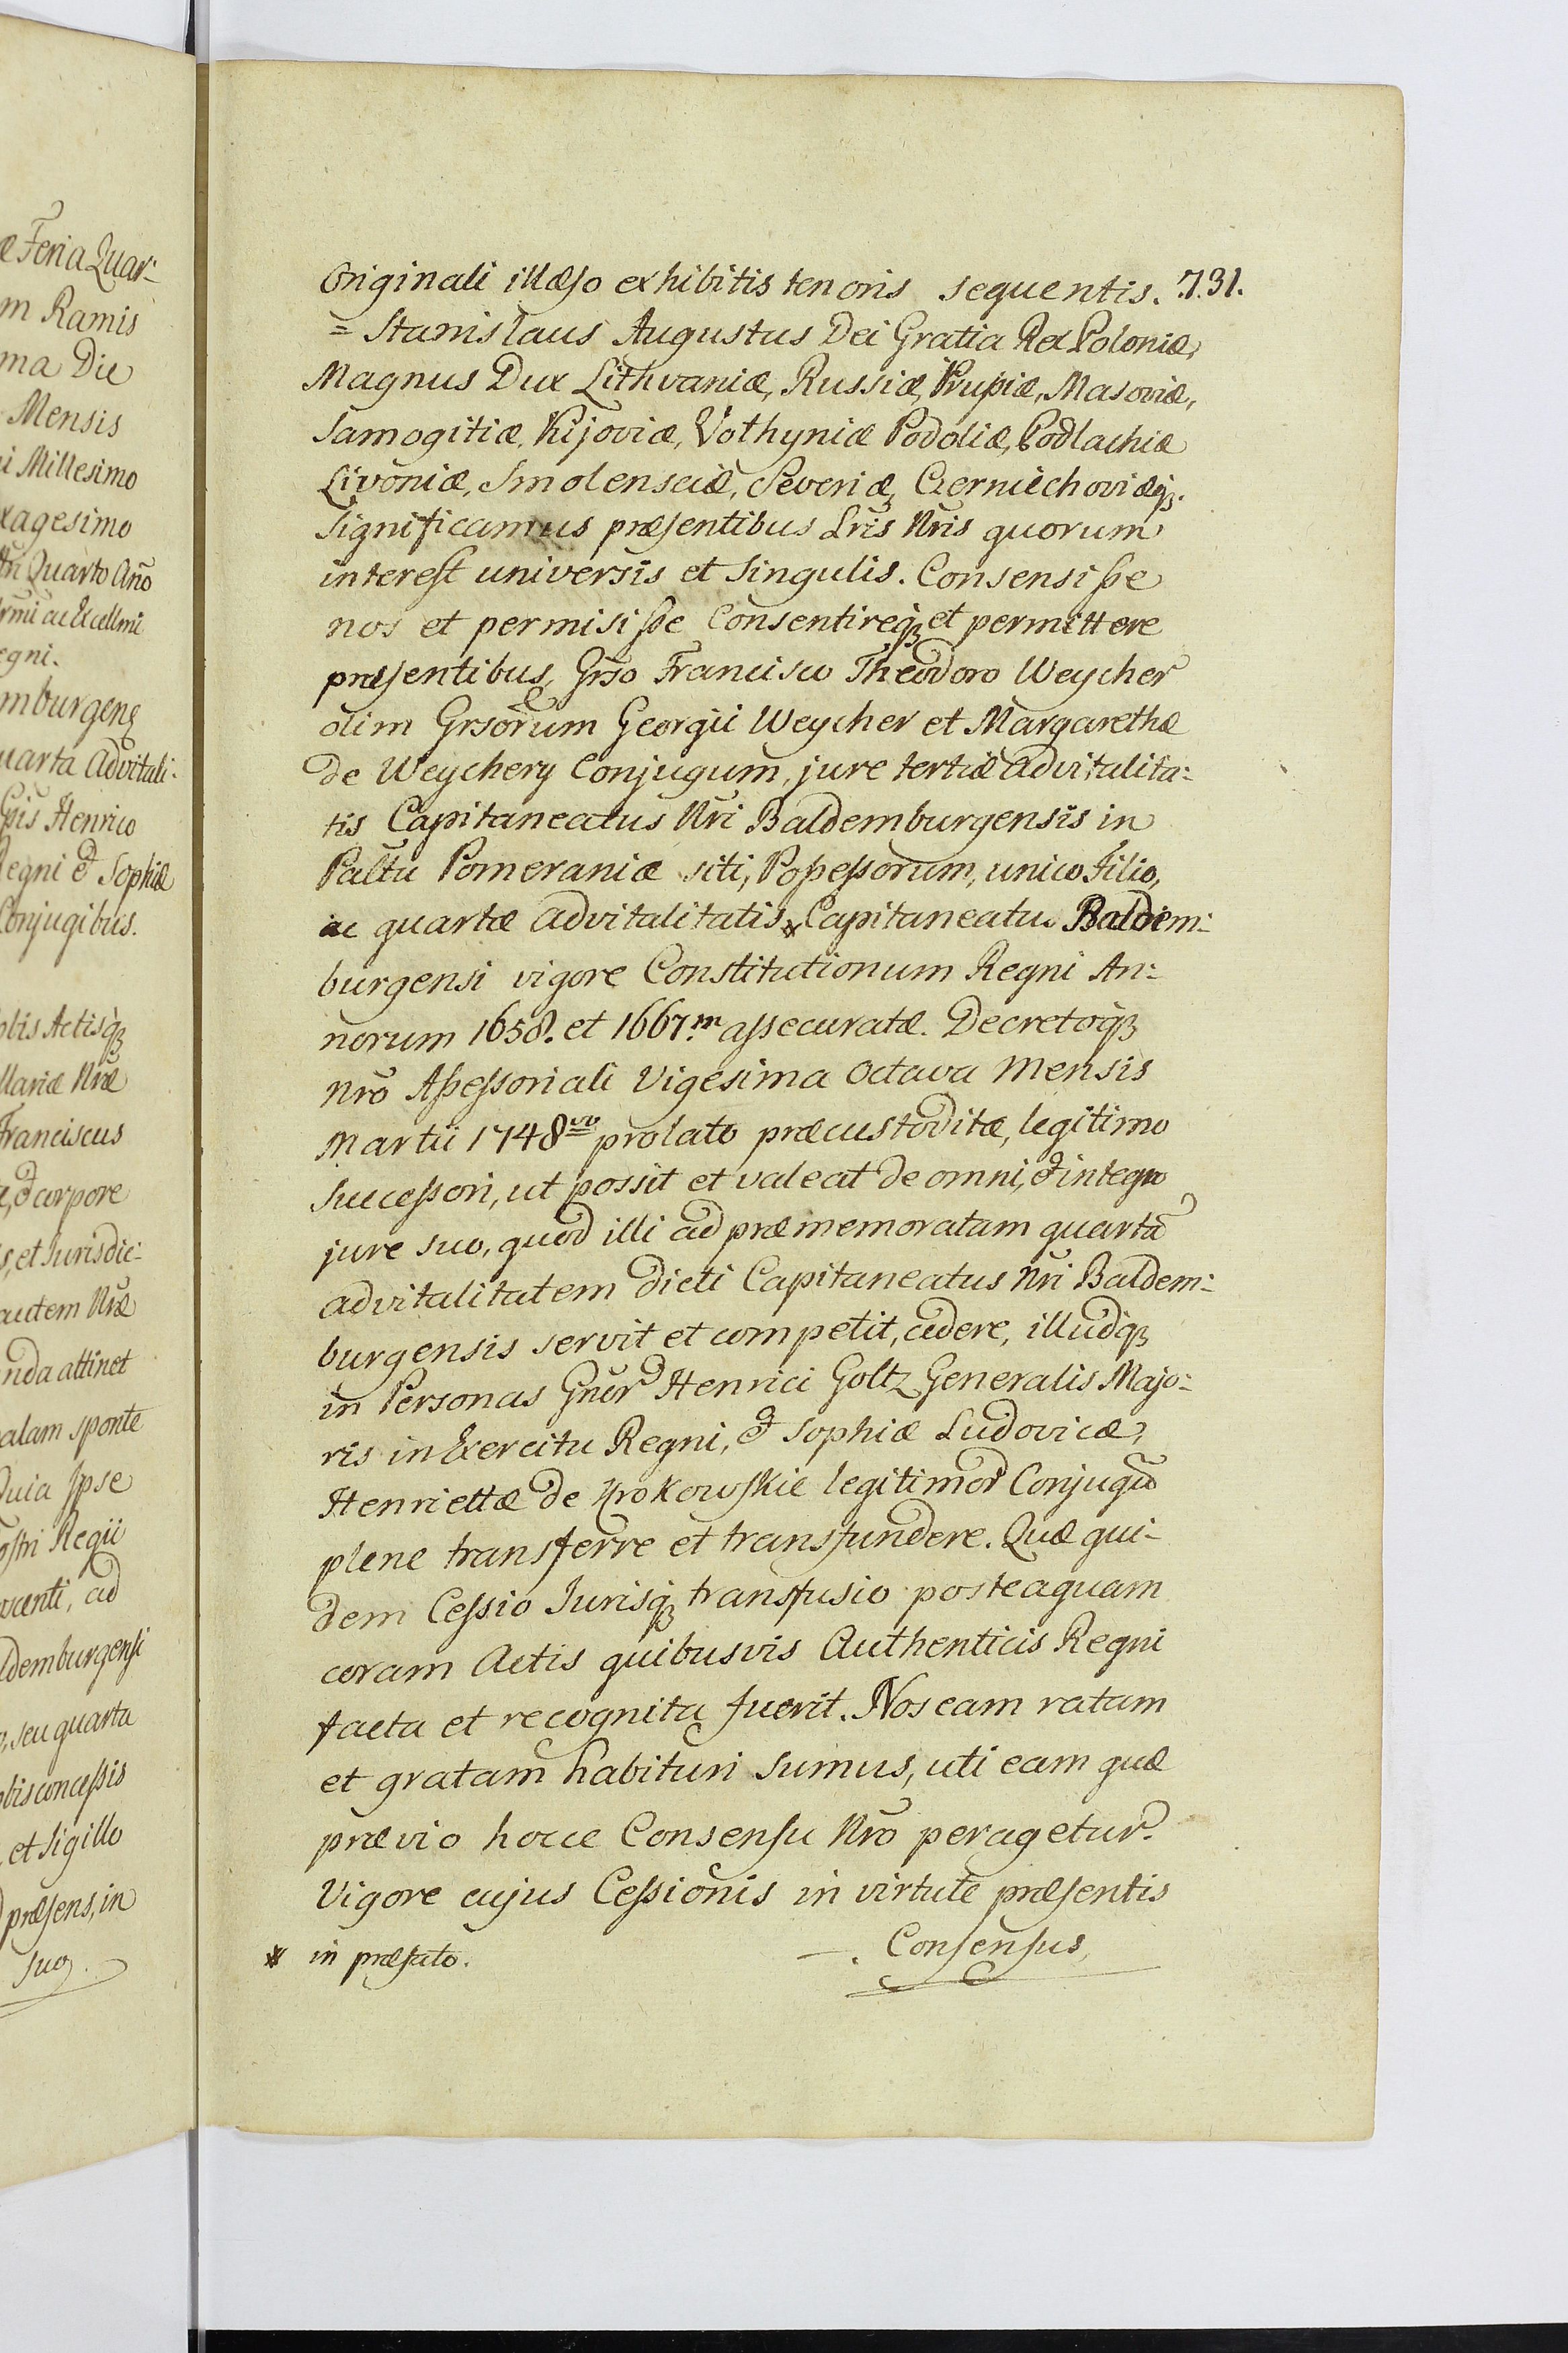 æ Feria Quar-
m Ramis
ma Die
Mensis
i Millesimo
xagesimo
Quarto Año
ac Excellmi
egni.
mburgens
uarta Advitali-
Henrico
Regni et Sophiæ
Conjugibus.
obis Actisq3
llariæ Nræ
Franciscus
, et corpore
s, et Jurisdic-
autem Nræ
nda attinet
alam sponte
Quia Ipse
ostri Regii
oscenti, ad
ldemburgensi
, seu quarta
obis concessis
, et Sigillo
præsens, in
suo.
Originali illæso exhibitis tenoris sequentis. 731.
= Stanislaus Augustus Dei Gratia Rex Poloniæ,
Magnus Dux Lithvaniæ, Russiæ, Prussiæ, Masoviæ,
Samogitiæ, Kijoviæ, Volhyniæ Podoliæ, Podlachiæ
Livoniæ, Smolensciæ, Severiæ, Czerniechoviæq3.
Significamus præsentibus Lris Nris quorum
interest universis et Singulis. Consensisse
nos et permisisse Consentireq3 et permittere
præsentibus, Grso Francisco Theodoro Weycher
olim Grsorum Georgii Weycher et Margarethæ
de Weychery Conjugum, jure tertiæ advitalita-
tis Capitaneatus Nri Baldemburgensis in
Palttu Pomeraniæ siti, Possessorum, unico Filio,
ac quartæ advitalitatis * Capitaneatu Baldem-
burgensi vigore Constitutionum Regni An-
norum 1658. et 1667.m assecuratæ. Decretoq3
Nro Assessoriali Vigesima Octava Mensis
Martii 1748vo prolato præcustoditæ, legitimo
Successori, ut possit et valeat de omni, et integro
jure suo, quod illi ad præmemoratam quartã
advitalitatem dicti Capitaneatus Nri Baldem-
burgensis servit et competit, cedere, illudq3
in Personas Gnor Henrici Goltz Generalis Majo-
ris in Exercitu Regni, et Sophiæ Ludovicæ,
Henriettæ de Krokowskie legitimor Conjugũ
plene transferre et transfundere. Quæ qui-
dem Cessio Jurisq3 transfusio posteaquam
coram Actis quibusvis Authenticis Regni
facta et recognita fuerit. Nos eam ratam
et gratam habituri sumus, uti eam quæ
prævio hocce Consensu Nro peragetur.
Vigore cujus Cessionis in virtute præsentis
* in præfato. —. Consensus,